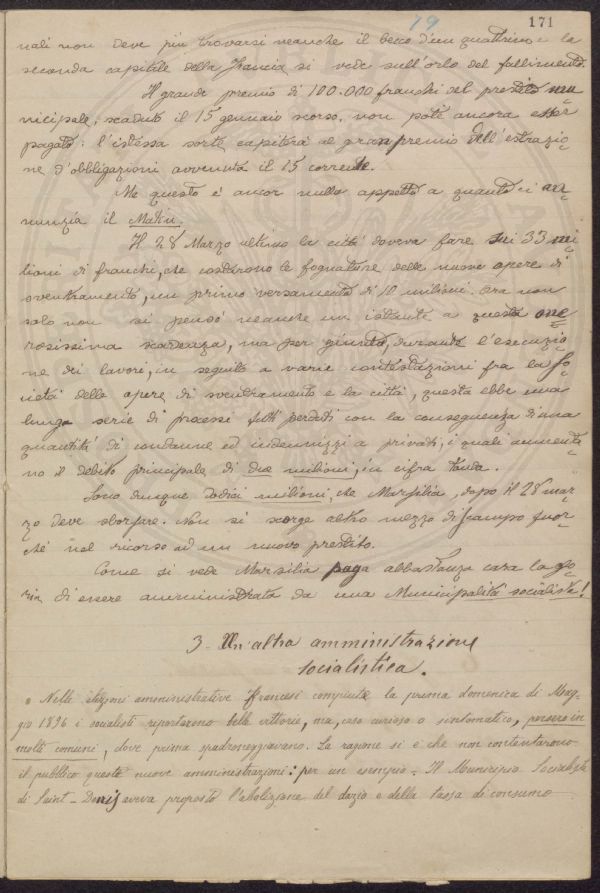 19 171
nali non deve più trovarsi neanche il becco d'un quattrino e la
seconda capitale della Francia si vede sull'orlo del fallimento.
Il grande premio di 100.000 franchi del prestito mu-
nicipale, scaduto il 15 gennaio scorso, non potè ancora esser
pagato: l'istessa sorte capiterà al gran premio dell'estrazio-
ne d'obbligazioni avvenuta il 15 corrente.
Ma questo è ancor nulla appetto a quanto ci an-
nunzia il Matin.
Il 28 Marzo ultimo la città doveva fare sui 33 mi-
lioni di franchi, che costarono le fognature delle nuove opere di
sventramento, un primo versamento di 10 milioni. Ora non
solo non si pensò neanche un istante a questa one-
rosissima scadenza, ma per giunta, durante l'esecuzio-
ne dei lavori, in seguito a varie contestazioni fra la So-
cietà delle opere di sventramento e la città, questa ebbe una
lunga serie di processi tutti perduti con la conseguenza d'una
quantità di condanne ed indennizzi a privati, i quali aumenta-
no il debito principale di due milioni, in cifra tonda.
Sono dunque dodici milioni, che Marsiglia, dopo il 28 mar-
zo deve sborsare. Non si scorge altro mezzo di scampo fuor-
chè nel ricorso ad un nuovo prestito.
Come si vede Marsilia paga abbastanza cara la glo-
ria di essere amministrata da una Municipalità socialista!
3. Un'altra amministrazione
socialistica.
Nelle elezioni amministrative francesi compiute la prima domenica di Mag-
gio 1896 i socialisti riportarono belle vittorie, ma, caso curioso e sintomatico, persero in
molti comuni, dove prima spadroneggiavano. La ragione si è che non contentarono
il pubblico queste nuove amministrazioni: per un esempio. Il Municipio Socialista
di Saint-Denis aveva proposto l'abolizione del dazio e della tassa di consumo